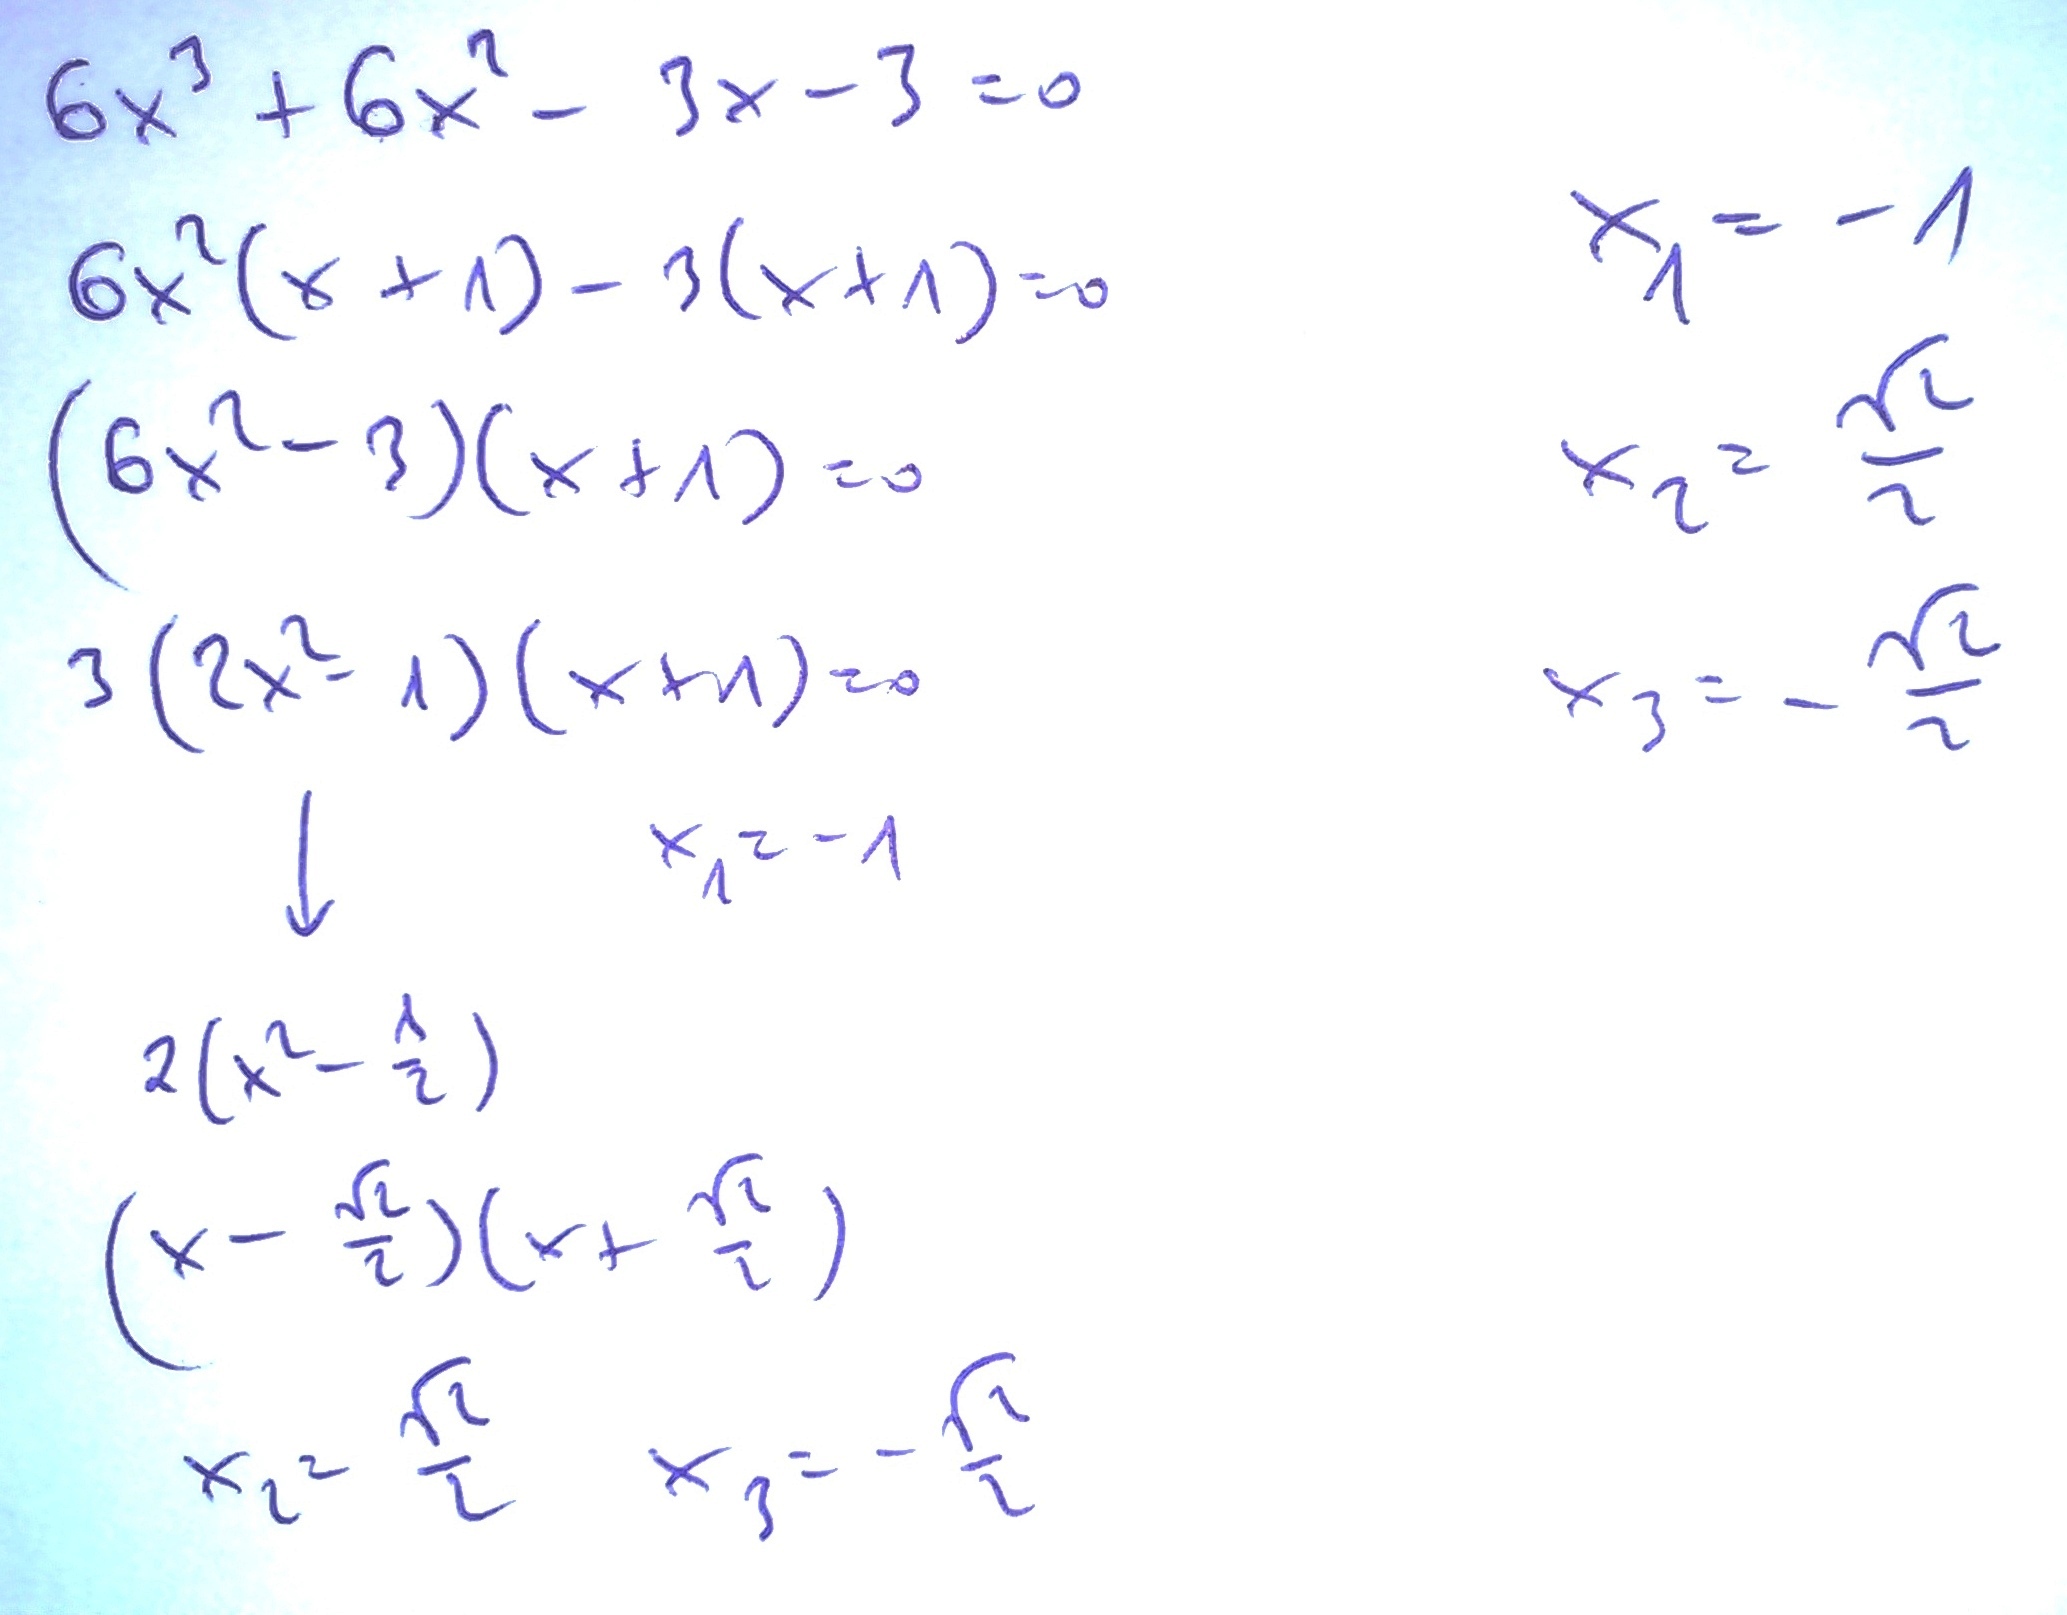 6x³ + 6x² - 3x - 3 = 0
6x²(x + 1) - 3(x + 1) = 0
(6x² - 3)(x + 1) = 0
3(2x² - 1)(x + 1) = 0
↓ x₁ = -1
2(x² - 1/2)
(x - √2/2)(x + √2/2)
x₂ = √2/2 x₃ = -√2/2
x₁ = -1
x₂ = √2/2
x₃ = -√2/2